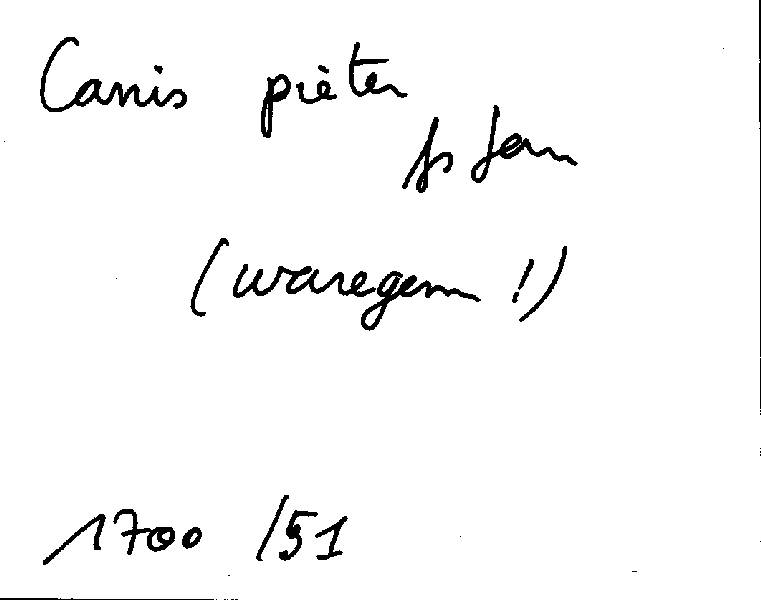 Canis pièter
fs Jan
(waregem !)
1700 /51